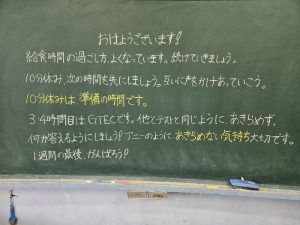 おはようございます!
給食時間の過ごし方、よくなっています。続けていきましょう。
10分休み、次の時間を先にしましょう。互いに声をかけあっていこう。
10分休みは準備の時間です。
3・4時間目はGTECです。他のテストと同じように、あきらめず、
何か答えるようにしましょう!アニーのように、あきらめない気持ち大切です。
1週間の最後、がんばろう!